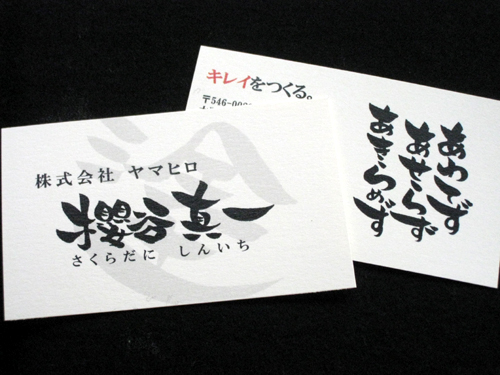 株式会社 ヤマヒロ
櫻谷真一
さくらだに しんいち
キレイをつくる。
〒546-00
あわてず
あせらず
あきらめず